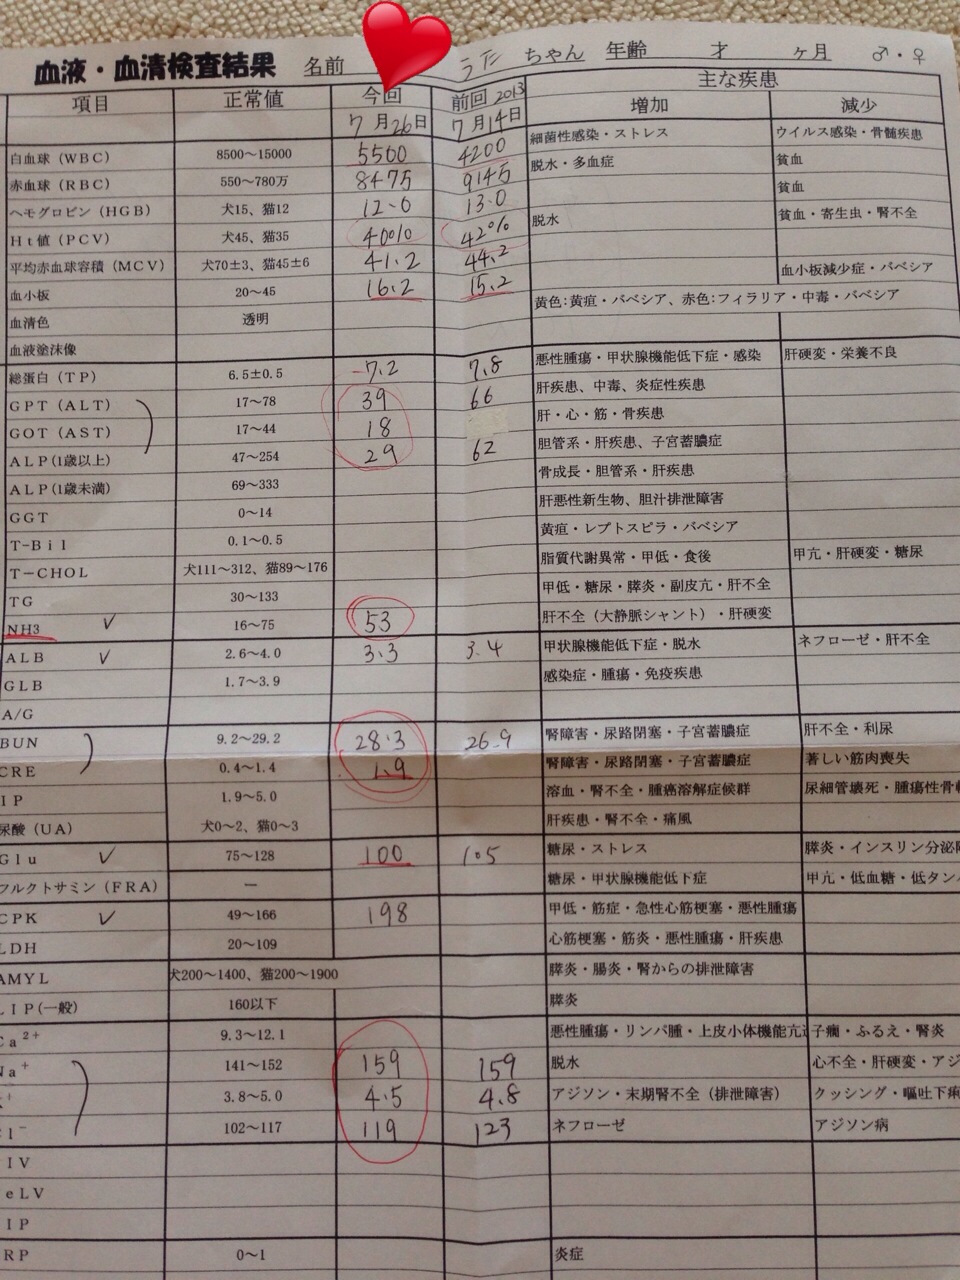 血液・血清検査結果 名前 ちゃん 年齢 才 ヶ月 ♂・♀
項目 正常値 今回 7月26日 前回 2013 7月14日 主な疾患 増加 減少
白血球(WBC) 8500～15000 5500 4200 細菌性感染・ストレス ウイルス感染・骨髄疾患
赤血球(RBC) 550～780万 8475 9145 脱水・多血症 貧血
ヘモグロビン(HGB) 犬15、猫12 12.0 13.0 貧血
Ht値(PCV) 犬45、猫35 40% 42% 脱水 貧血・寄生虫・腎不全
平均赤血球容積(MCV) 犬70±3、猫45±6 41.2 44.2
血小板 20～45 16.2 15.2 血小板減少症・バベシア
血清色 透明 黄色:黄疸・バベシア、赤色:フィラリア・中毒・バベシア
血液塗沫像
総蛋白(TP) 6.5±0.5 7.2 7.8 悪性腫瘍・甲状腺機能低下症・感染 肝硬変・栄養不良
GPT(ALT) 17～78 39 66 肝疾患、中毒、炎症性疾患
GOT(AST) 17～44 18 肝・心・筋・骨疾患
ALP(1歳以上) 47～254 29 62 胆管系・肝疾患、子宮蓄膿症
ALP(1歳未満) 69～333 骨成長・胆管系・肝疾患
GGT 0～14 肝悪性新生物、胆汁排泄障害
T-Bil 0.1～0.5 黄疸・レプトスピラ・バベシア
T-CHOL 犬111～312、猫89～176 脂質代謝異常・甲低・食後 甲亢・肝硬変・糖尿
TG 30～133 甲低・糖尿・膵炎・副皮亢・肝不全
NH3 ✓ 16～75 53 肝不全（大静脈シャント）・肝硬変
ALB ✓ 2.6～4.0 3.3 3.4 甲状腺機能低下症・脱水 ネフローゼ・肝不全
GLB 1.7～3.9 感染症・腫瘍・免疫疾患
A/G
BUN 9.2～29.2 28.3 26.9 腎障害・尿路閉塞・子宮蓄膿症 肝不全・利尿
CRE 0.4～1.4 1.9 腎障害・尿路閉塞・子宮蓄膿症 著しい筋肉喪失
IP 1.9～5.0 溶血・腎不全・腫瘍溶解症候群 尿細管壊死・腫瘍性骨
尿酸(UA) 犬0～2、猫0～3 肝疾患・腎不全・痛風
Glu ✓ 75～128 100 105 糖尿・ストレス 膵炎・インスリン分泌
フルクトサミン(FRA) ー 糖尿・甲状腺機能低下症 甲亢・低血糖・低タン
CPK ✓ 49～166 198 甲低・筋症・急性心筋梗塞・悪性腫瘍
LDH 20～109 心筋梗塞・筋炎・悪性腫瘍・肝疾患
AMYL 犬200～1400、猫200～1900 膵炎・腸炎・腎からの排泄障害
LIP(一般) 160以下 膵炎
Ca²⁺ 9.3～12.1 悪性腫瘍・リンパ腫・上皮小体機能亢進 子癇・ふるえ・腎炎
Na⁺ 141～152 159 159 脱水 心不全・肝硬変・アジ
K⁺ 3.8～5.0 4.5 4.8 アジソン・末期腎不全（排泄障害） クッシング・嘔吐下痢
Cl⁻ 102～117 119 123 ネフローゼ アジソン病
IV
eLV
IP
RP 0～1 炎症